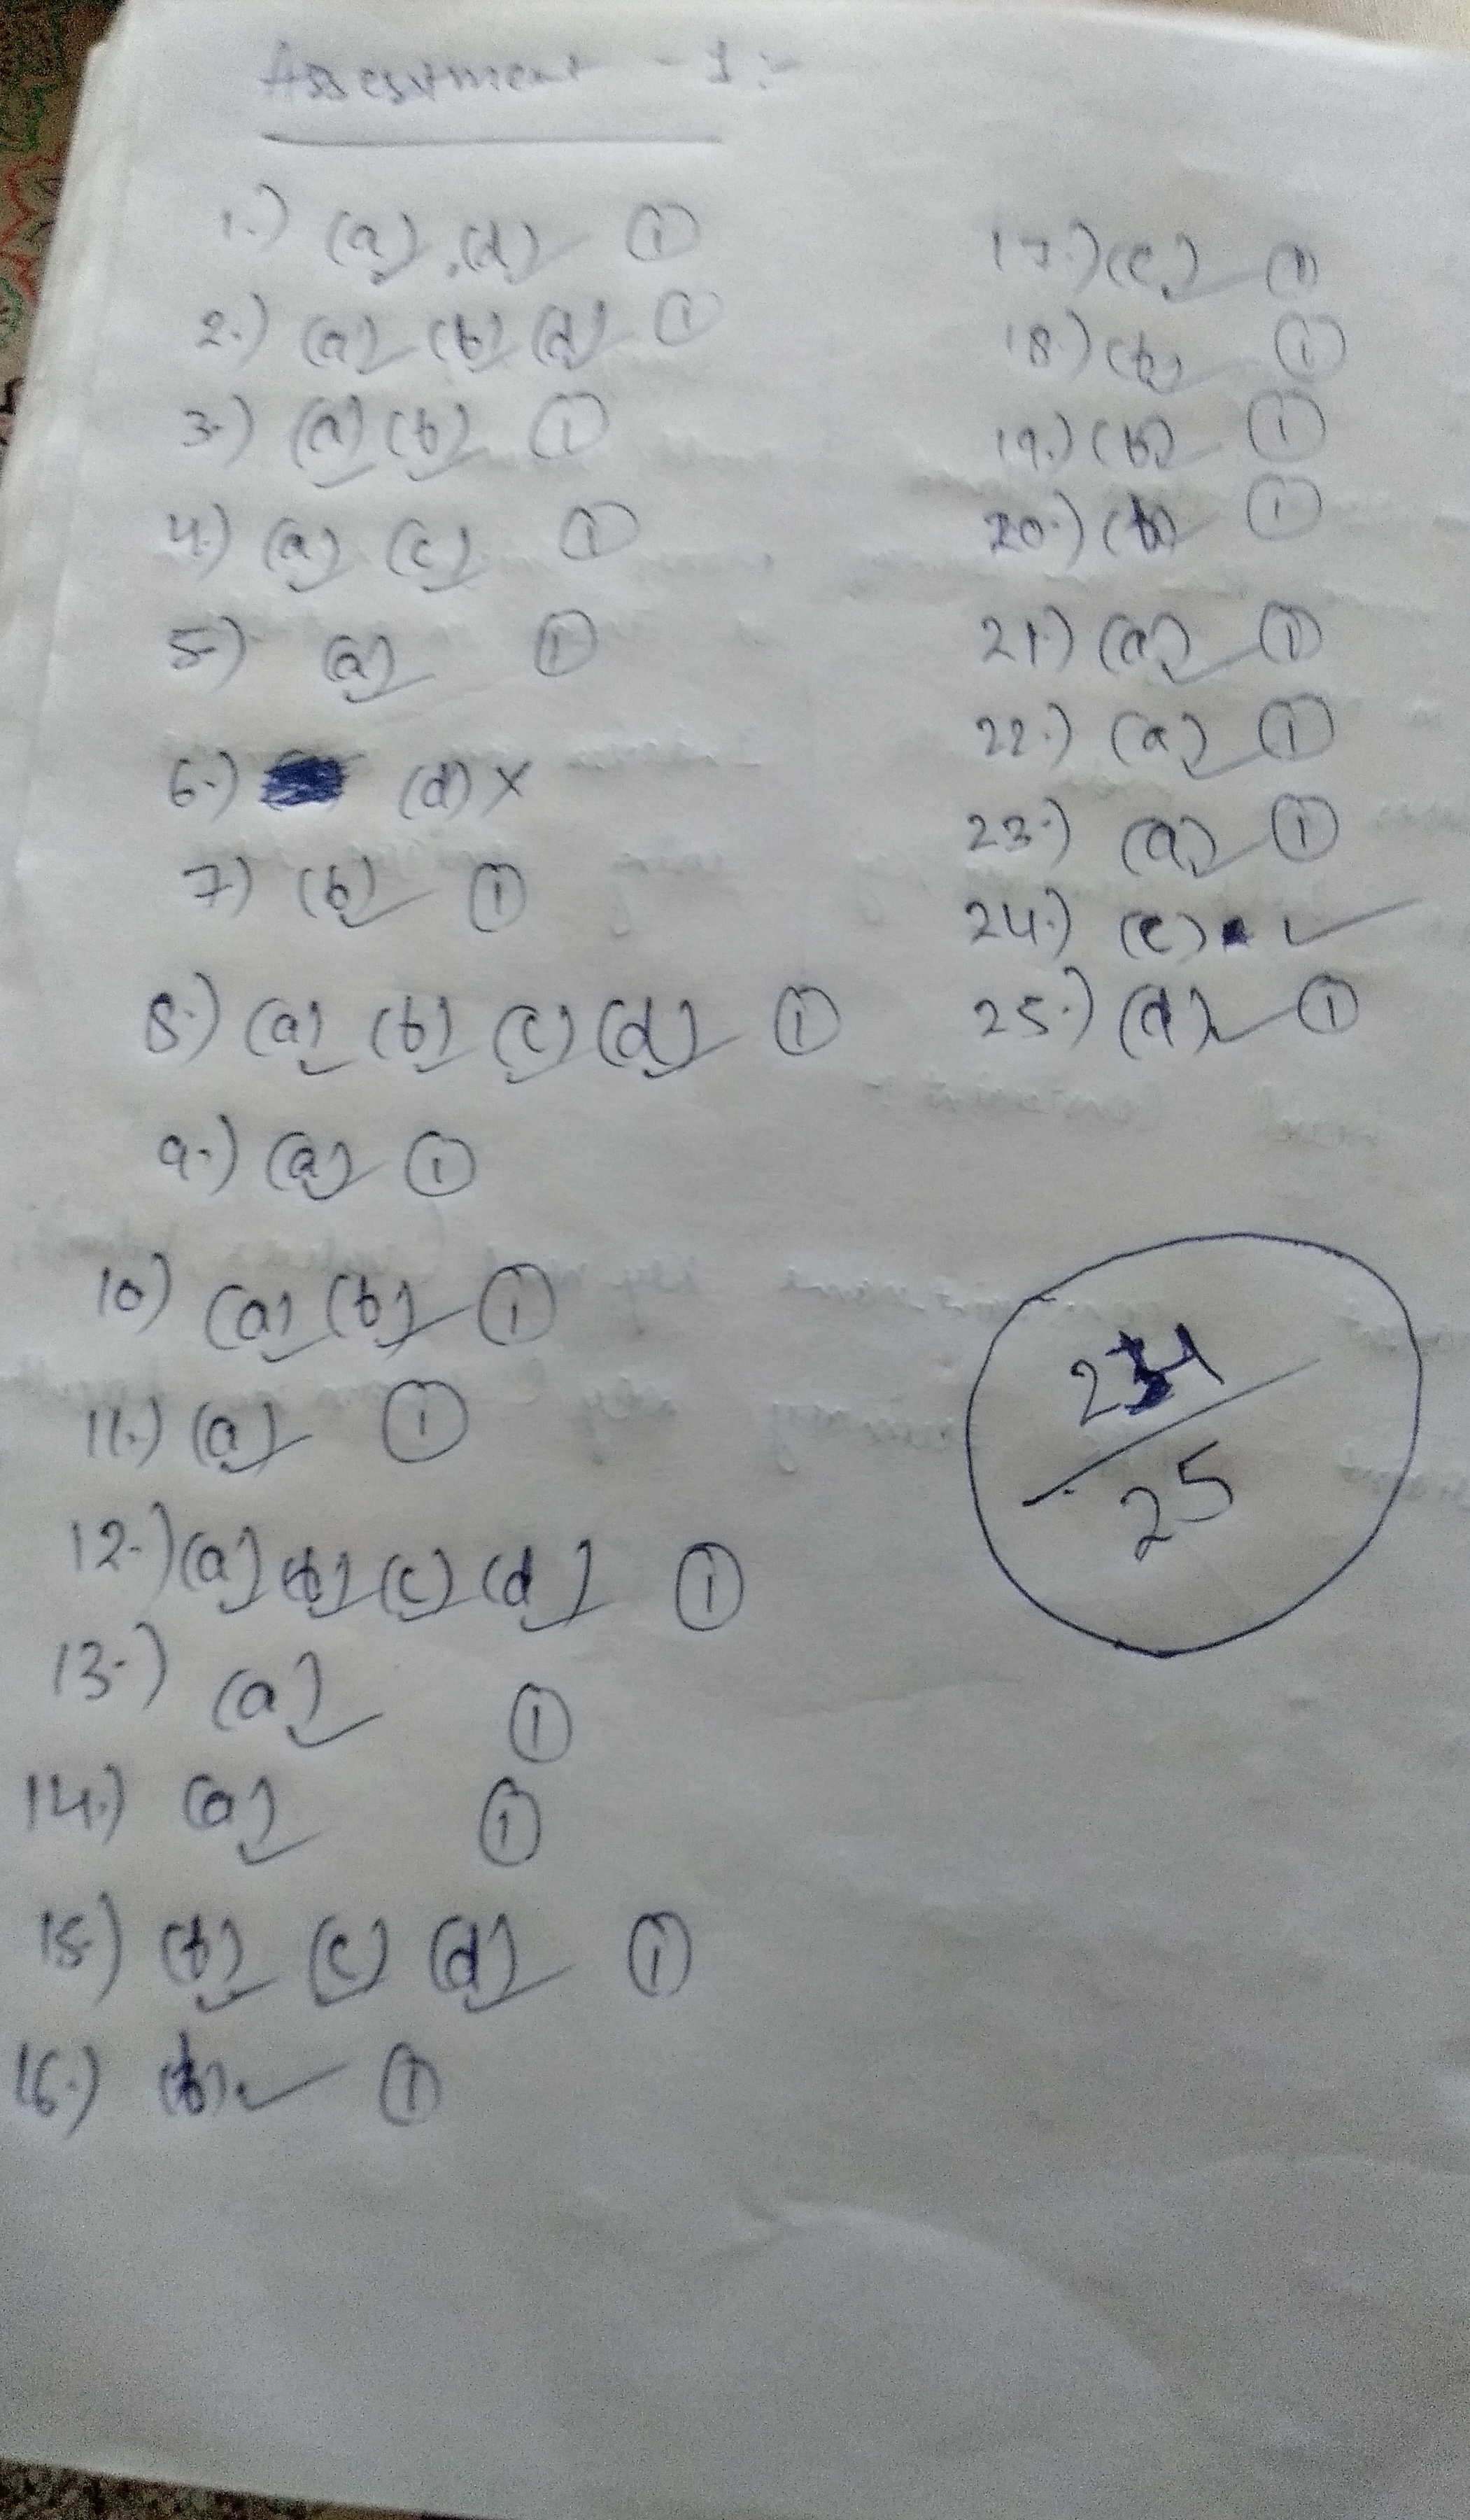 Assesstment - 1 :-
1.) (a) (d) ①
2.) (a) (b) (d) ①
3.) (a) (b) ①
4.) (a) (c) ①
5.) (a) ①
6.) (d) ×
7.) (b) ①
8.) (a) (b) (c) (d) ①
9.) (a) ①
10) (a) (b) ①
11.) (a) ①
12.) (a) (b) (c) (d) ①
13.) (a) ①
14.) (a) ①
15.) (b) (c) (d) ①
16.) (b) ①
17.) (c) ①
18.) (b) ①
19.) (b) ①
20.) (b) ①
21.) (a) ①
22.) (a) ①
23.) (a) ①
24.) (c) ✓
25.) (d) ①
24
25